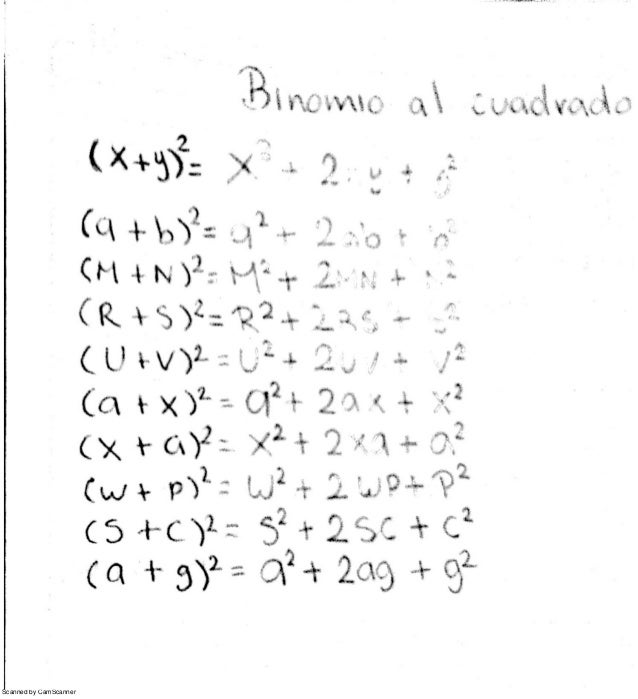 Binomio al cuadrado
(x+y)²= x² + 2xy + y²
(a + b)²= a² + 2ab + b²
(M + N)²= M² + 2MN + N²
(R + S)²= R² + 2RS + S²
(U + V)² = U² + 2UV + V²
(a + x)² = a² + 2ax + x²
(x + a)² = x² + 2xa + a²
(w + p)² = w² + 2wp + p²
(S + C)² = S² + 2SC + C²
(a + g)² = a² + 2ag + g²
Scanned by CamScanner